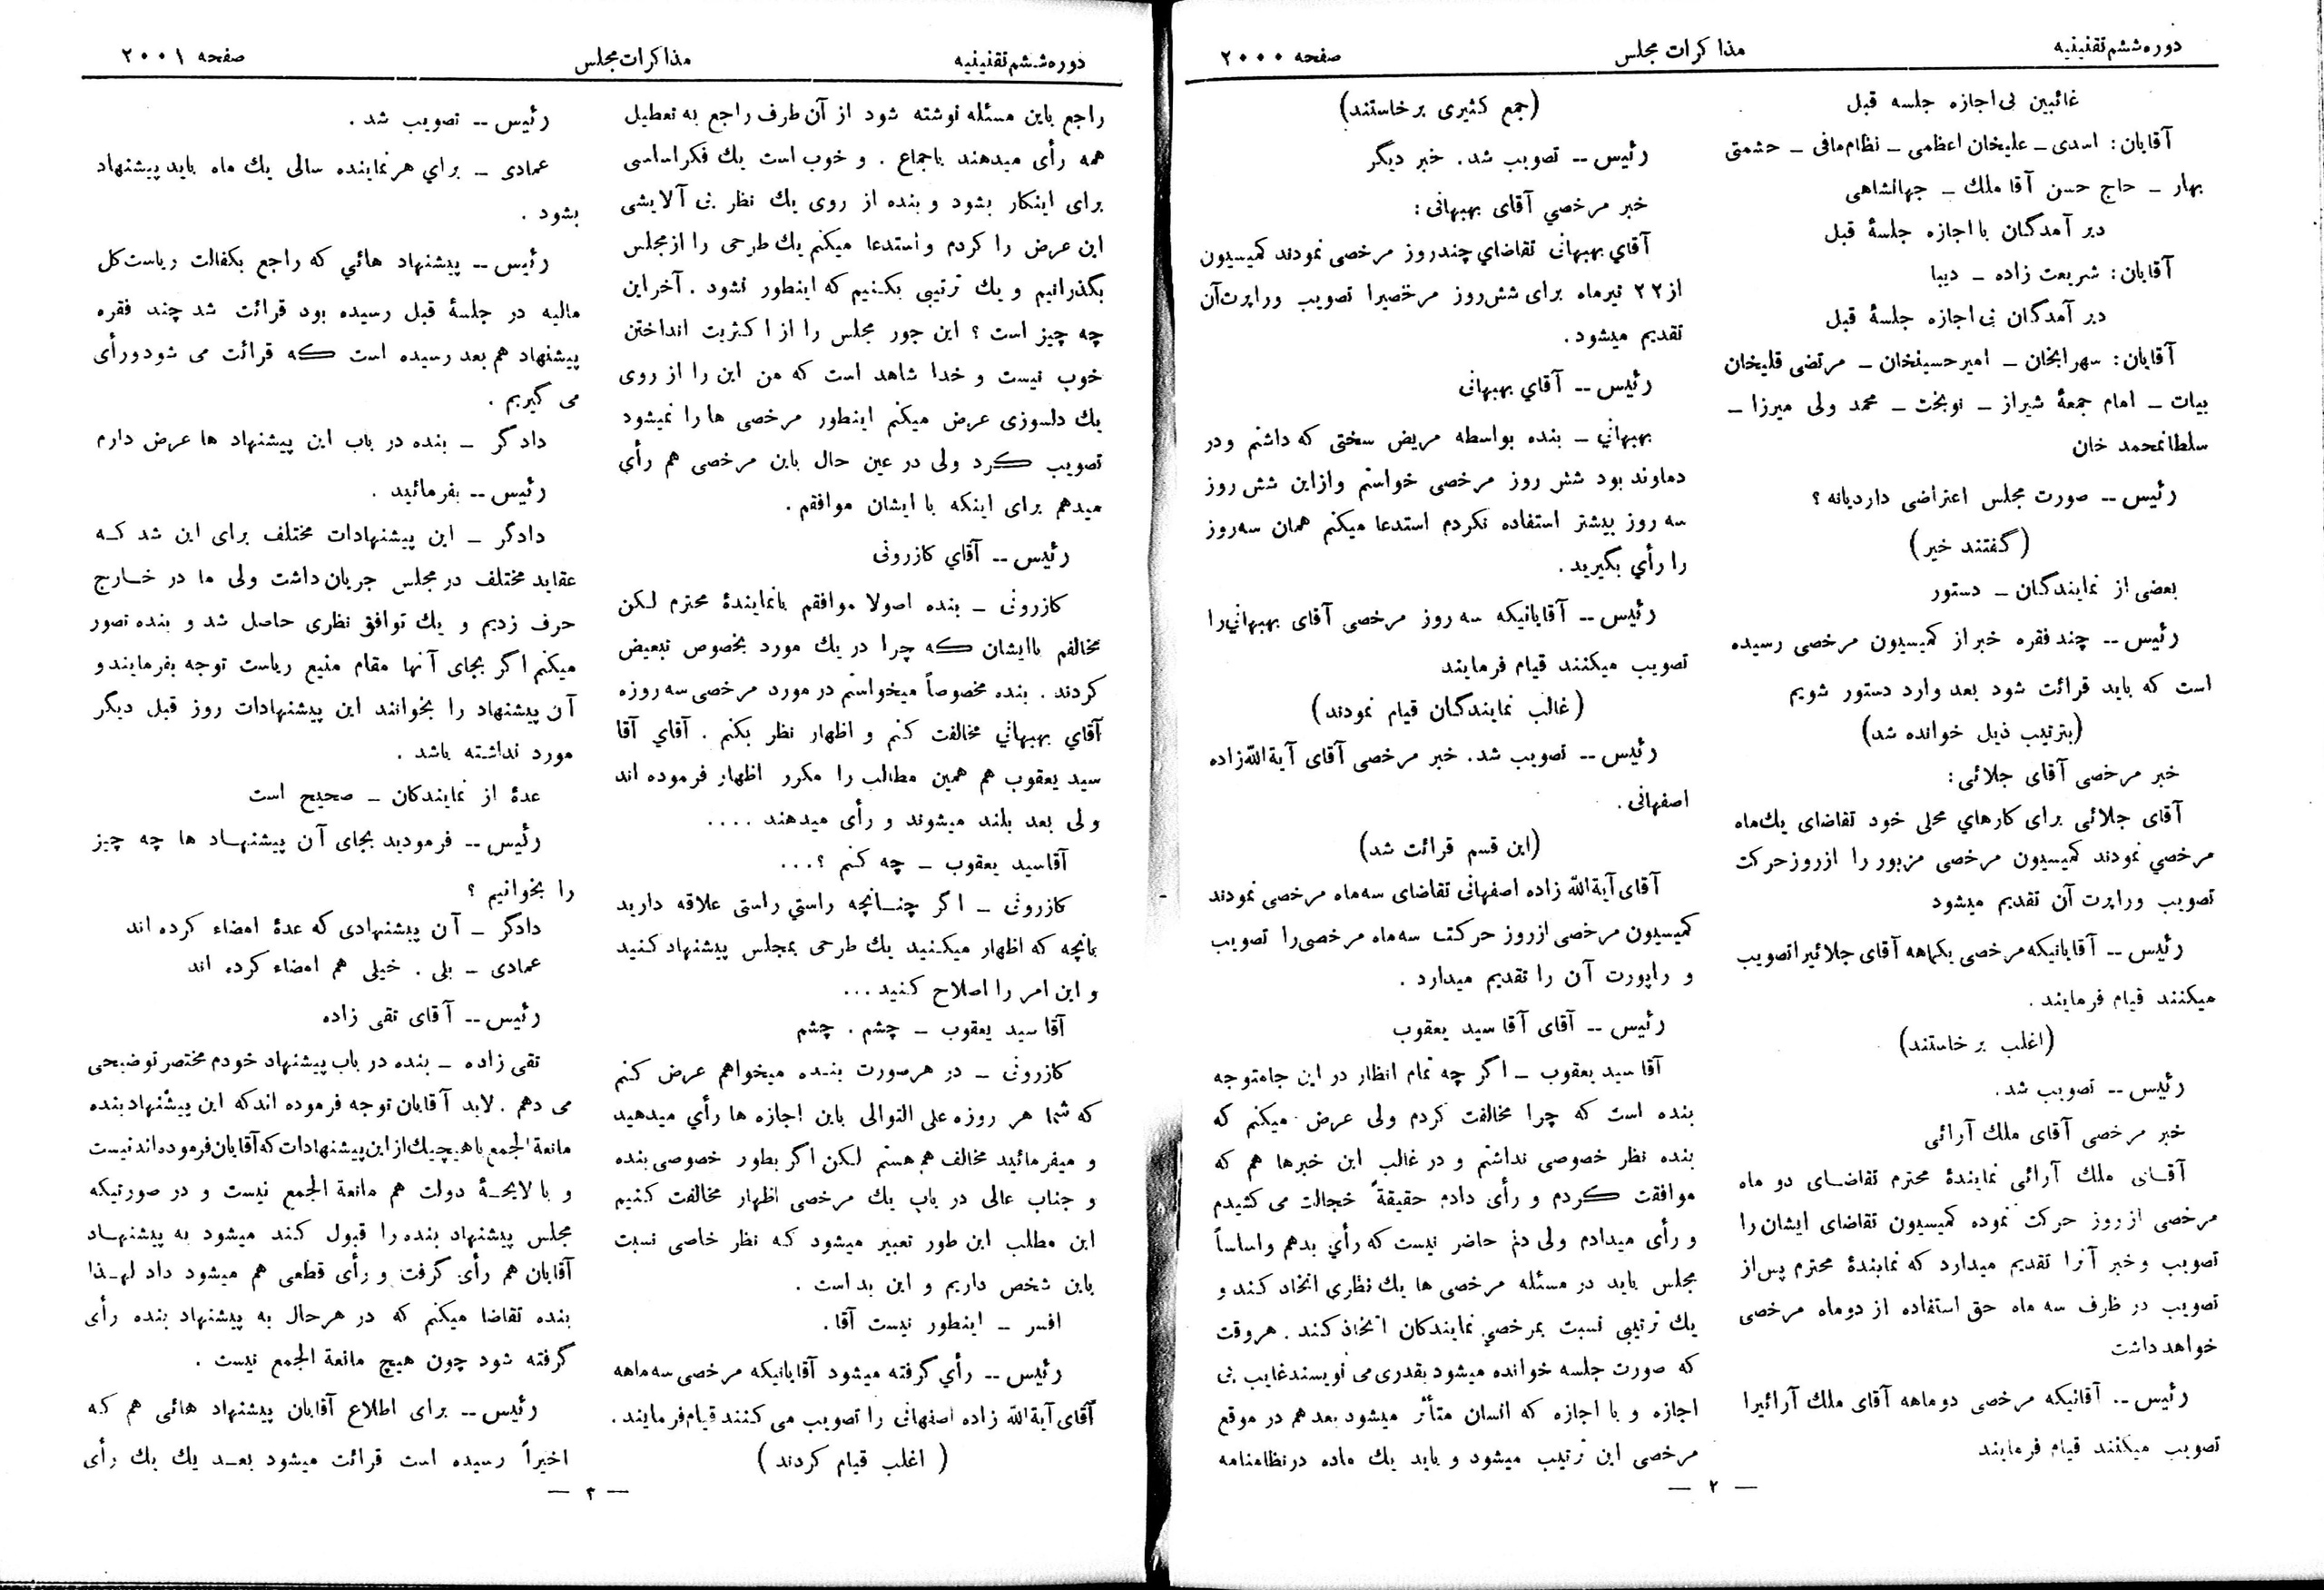 دوره ششم تقنینیه
مذاکرات مجلس
صفحه ۲۰۰۰
غائبین بی اجازه جلسه قبل
آقایان: اسدی ــ علیخان اعظمی ــ نظام مافی ــ حشمتی
بهار ــ حاج حسن آقا ملك ــ جهانشاهی
دیر آمدگان با اجازه جلسهٔ قبل
آقایان: شریعت زاده ــ دیبا
دیر آمدگان بی اجازه جلسهٔ قبل
آقایان: سهرابخان ــ امیر حسینخان ــ مرتضی قلیخان
بیات ــ امام جمعهٔ شیراز ــ نوبخت ــ محمد ولی میرزا ــ
سلطانمحمد خان
رئیس ــ صورت مجلس اعتراضی دارد یا نه ؟
(گفتند خیر)
بعضی از نمایندگان ــ دستور
رئیس ــ چند فقره خبر از کمیسیون مرخصی رسیده
است که باید قرائت شود بعد وارد دستور شویم
(بترتیب ذیل خوانده شد)
خبر مرخصی آقای جلائی:
آقای جلائی برای کارهاي محلی خود تقاضای یك ماه
مرخصي نمودند کمیسیون مرخصی مزبور را از روز حرکت
تصویب و راپرت آن تقدیم میشود
رئیس ــ آقایانیکه مرخصی یکماهه آقای جلائیرا تصویب
میکنند قیام فرمایند.
(اغلب برخاستند)
رئیس ــ تصویب شد.
خبر مرخصی آقای ملك آرائی
آقـای ملك آرائی نمایندهٔ محترم تقاضـای دو ماه
مرخصی از روز حرکت نموده کمیسیون تقاضای ایشان را
تصویب و خبر آنرا تقدیم میدارد که نمایندهٔ محترم پس از
تصویب در ظرف سه ماه حق استفاده از دو ماه مرخصی
خواهد داشت
رئیس ــ. آقانیکه مرخصی دو ماهه آقای ملك آرائیرا
تصویب میکنند قیام فرمایند
(جمع کثیری برخاستند)
رئیس ــ تصویب شد. خبر دیگر
خبر مرخصي آقای بهبهانی:
آقاي بهبهانی تقاضاي چند روز مرخصی نمودند کمیسیون
از ۲۲ تیر ماه برای شش روز مرخصیرا تصویب و راپرت آن
تقدیم میشود.
رئیس ــ آقاي بهبهانی
بهبهانی ــ بنده بواسطه مریض سختی که داشتم و در
دماوند بود شش روز مرخصی خواستم و از این شش روز
سه روز بیشتر استفاده نکردم استدعا میکنم همان سه روز
را رأي بگیرید.
رئیس ــ آقایانیکه سه روز مرخصی آقای بهبهاني را
تصویب میکنند قیام فرمایند
(غالب نمایندگان قیام نمودند)
رئیس ــ تصویب شد. خبر مرخصی آقای آیة الله زاده
اصفهانی.
(این قسم قرائت شد)
آقای آیة الله زاده اصفهانی تقاضای سه ماه مرخصی نمودند
کمیسیون مرخصی از روز حرکت سه ماه مرخصی را تصویب
و راپورت آن را تقدیم میدارد .
رئیس ــ آقای آقا سید یعقوب
آقا سید یعقوب ــ اگر چه تمام انظار در این جا متوجه
بنده است که چرا مخالفت کردم ولی عرض میکنم که
بنده نظر خصوصی نداشتم و در غالب این خبرها هم که
موافقت کردم و رأی دادم حقیقةً خجالت می کشیدم
و رأی میدادم ولی دلم حاضر نیست که رأي بدهم و اساساً
مجلس باید در مسئله مرخصی ها یك نظری اتخاد کند و
یك ترتیبی نسبت بمرخصی نمایندگان اتخاذ کنند . هر وقت
که صورت جلسه خوانده میشود بقدری می نویسند غایب بی
اجازه و با اجازه که انسان متأثر میشود بعد هم در موقع
مرخصی این ترتیب میشود و باید یك ماده در نظامنامه
— ۲ —
دوره ششم تقنینیه
مذاکرات مجلس
صفحه ۲۰۰۱
راجع باین مسئله نوشته شود از آن طرف راجع به تعطیل
همه رأی میدهند باجماع . و خوب است یك فکر اساسی
برای اینکار بشود و بنده از روی یك نظر بی آلایشی
این عرض را کردم و استدعا میکنم یك طرحی را از مجلس
بگذرانیم و یك ترتیبی بکنیم که اینطور نشود . آخر این
چه چیز است ؟ این جور مجلس را از اکثریت انداختن
خوب نیست و خدا شاهد است که من این را از روی
یك دلسوزی عرض میکنم اینطور مرخصی ها را نمیشود
تصویب کرد ولی در عین حال باین مرخصی هم رأی
میدهم برای اینکه با ایشان موافقم.
رئیس ــ آقاي کازرونی
کازرونی ــ بنده اصولا موافقم با نمایندهٔ محترم لکن
مخالفم با ایشان که چرا در یك مورد بخصوص تبعیض
کردند . بنده مخصوصاً میخواستم در مورد مرخصی سه روزه
آقاي بهبهاني مخالفت کنم و اظهار نظر بکنم . آقاي آقا
سید یعقوب هم همین مطالب را مکرر اظهار فرموده اند
ولی بعد بلند میشوند و رأی میدهند ....
آقا سید یعقوب ــ چه کنم ؟...
کازرونی ــ اگر چنـانچه راستي راستی علاقه دارید
بآنچه که اظهار میکنید یك طرحی بمجلس پیشنهاد کنید
و این امر را اصلاح کنید...
آقا سید یعقوب ــ چشم . چشم
کازرونی ــ در هر صورت بنـده میخواهم عرض کنم
که شما هر روزه علی التوالی باین اجازه ها رأي میدهید
و میفرمائید مخالف هم هستم لکن اگر بطور خصوصی بنده
و جناب عالی در باب یك مرخصی اظهار مخالفت کنیم
این مطلب این طور تعبیر میشود که نظر خاصی نسبت
باین شخص داریم و این بد است .
افسر ــ اینطور نیست آقا.
رئیس ــ رأي گرفته میشود آقایانیکه مرخصی سه ماهه
آقای آیة الله زاده اصفهانی را تصویب می کنند قیام فرمایند.
( اغلب قیام کردند )
رئیس ــ تصویب شد .
عمادی ــ براي هر نماینده سالی یك ماه باید پیشنهاد
بشود .
رئیس ــ پیشنهاد هائي که راجع بکفالت ریاست کل
مالیه در جلسهٔ قبل رسیده بود قرائت شد چند فقره
پیشنهاد هم بعد رسیده است که قرائت می شود و رأی
می گیریم .
دادگر ــ بنده در باب این پیشنهاد ها عرض دارم
رئیس ــ بفرمائید .
دادگر ــ این پیشنهادات مختلف برای این شد کـه
عقاید مختلف در مجلس جریان داشت ولی ما در خـارج
حرف زدیم و یك توافق نظری حاصل شد و بنده تصور
میکنم اگر بجای آنها مقام منیع ریاست توجه بفرمایند و
آن پیشنهاد را بخوانند این پیشنهادات روز قبل دیگر
مورد نداشته باشد .
عدهٔ از نمایندگان ــ صحیح است
رئیس ــ فرمودید بجای آن پیشنهـاد ها چه چیز
را بخوانیم ؟
دادگر ــ آن پیشنهادی که عدهٔ امضاء کرده اند
عمادی ــ بلی . خیلی هم امضاء کرده اند
رئیس ــ آقای تقی زاده
تقی زاده ــ بنده در باب پیشنهاد خودم مختصر توضیحی
می دهم . لابد آقایان توجه فرموده اند که این پیشنهاد بنده
مانعة الجمع با هیچیك از این پیشنهادات که آقایان فرموده اند نیست
و با لایحـهٔ دولت هم مانعة الجمع نیست و در صورتیکه
مجلس پیشنهاد بنده را قبول کند میشود به پیشنهـاد
آقایان هم رأی گرفت و رأی قطعی هم میشود داد لهـذا
بنده تقاضا میکنم که در هر حال به پیشنهاد بنده رأی
گرفته شود چون هیچ مانعة الجمع نیست .
رئیس ــ برای اطلاع آقایان پیشنهاد هائی هم که
اخیراً رسیده است قرائت میشود بعـد یك یك رأی
— ۳ —